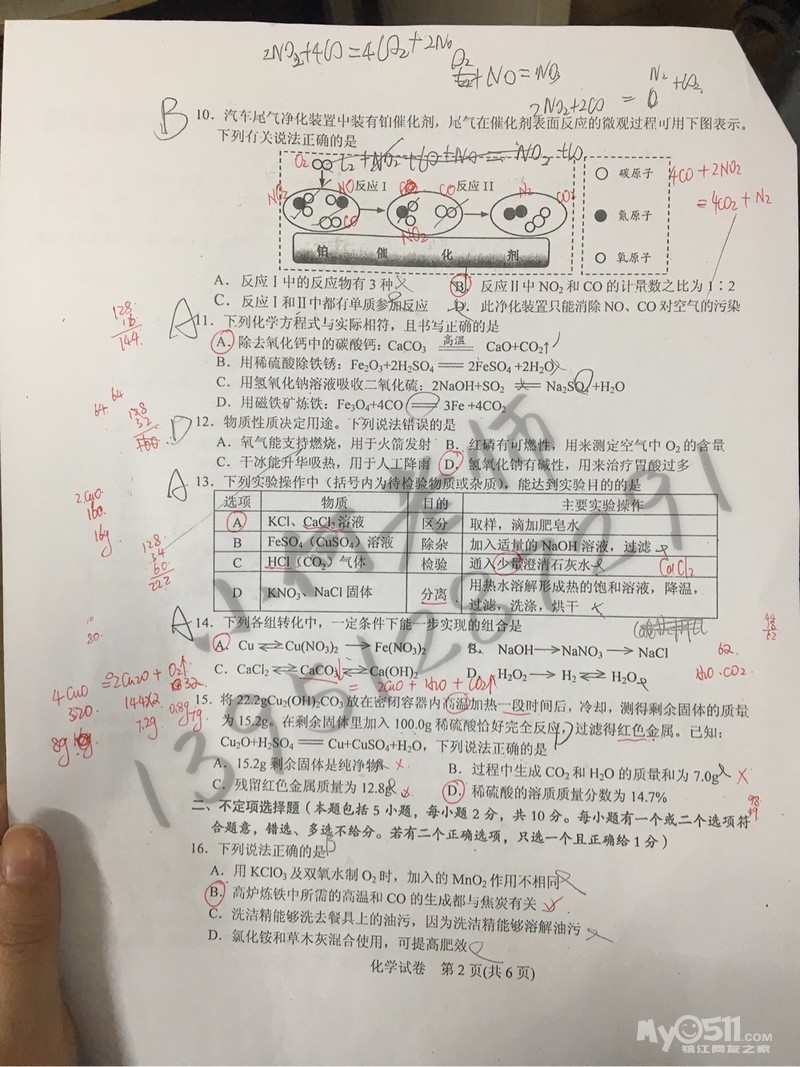 2NO₂+4CO=4CO₂+2NO
B
10. 汽车尾气净化装置中装有铂催化剂，尾气在催化剂表面反应的微观过程可用下图表示。
下列有关说法正确的是
O₂
NO₂ NO 反应Ⅰ CO₂ CO 反应Ⅱ N₂ CO₂
CO NO₂
碳原子
氮原子
氧原子
铂 催 化 剂
4CO+2NO₂
=4CO₂+N₂
A. 反应Ⅰ中的反应物有 3 种 B. 反应Ⅱ中 NO₂ 和 CO 的计量数之比为 1∶2
C. 反应Ⅰ和Ⅱ中都有单质参加反应 D. 此净化装置只能消除 NO、CO 对空气的污染
A
11. 下列化学方程式与实际相符，且书写正确的是
A. 除去氧化钙中的碳酸钙：CaCO₃ 高温 CaO+CO₂↑
B. 用稀硫酸除铁锈：Fe₂O₃+2H₂SO₄ == 2FeSO₄ +2H₂O
C. 用氢氧化钠溶液吸收二氧化硫：2NaOH+SO₂ == Na₂SO₄ +H₂O
D. 用磁铁矿炼铁：Fe₃O₄+4CO == 3Fe +4CO₂
D
12. 物质性质决定用途。下列说法错误的是
A. 氧气能支持燃烧，用于火箭发射 B. 红磷有可燃性，用来测定空气中 O₂ 的含量
C. 干冰能升华吸热，用于人工降雨 D. 氢氧化钠有碱性，用来治疗胃酸过多
A
13. 下列实验操作中（括号内为待检验物质或杂质），能达到实验目的的是
选项 物质 目的 主要实验操作
A KCl、CaCl₂ 溶液 区分 取样，滴加肥皂水
B FeSO₄（CuSO₄）溶液 除杂 加入适量的 NaOH 溶液，过滤
C HCl（CO₂）气体 检验 通入少量澄清石灰水 CaCl₂
D KNO₃、NaCl 固体 分离 用热水溶解形成热的饱和溶液，降温，
过滤，洗涤，烘干
A
14. 下列各组转化中，一定条件下能一步实现的组合是
A. Cu⇌Cu(NO₃)₂ → Fe(NO₃)₂ B. NaOH→NaNO₃ → NaCl
C. CaCl₂⇌CaCO₃⇌Ca(OH)₂ D. H₂O₂→ H₂⇌ H₂O
= 2CuO + H₂O + CO₂↑
H₂O·CO₂
15. 将 22.2gCu₂(OH)₂CO₃ 放在密闭容器内高温加热一段时间后，冷却，测得剩余固体的质量
为 15.2g。在剩余固体里加入 100.0g 稀硫酸恰好完全反应，过滤得红色金属。已知：
Cu₂O+H₂SO₄ == Cu+CuSO₄+H₂O，下列说法正确的是
A. 15.2g 剩余固体是纯净物 B. 过程中生成 CO₂ 和 H₂O 的质量和为 7.0g
C. 残留红色金属质量为 12.8g D. 稀硫酸的溶质质量分数为 14.7%
4CuO =2Cu₂O + O₂↑
320 144×2 32
7.2g 0.8g
二、不定项选择题（本题包括 5 小题，每小题 2 分，共 10 分。每小题有一个或二个选项符
合题意，错选、多选不给分。若有二个正确选项，只选一个且正确给 1 分）
16. 下列说法正确的是
A. 用 KClO₃ 及双氧水制 O₂ 时，加入的 MnO₂ 作用不相同
B. 高炉炼铁中所需的高温和 CO 的生成都与焦炭有关
C. 洗洁精能够洗去餐具上的油污，因为洗洁精能够溶解油污
D. 氯化铵和草木灰混合使用，可提高肥效
化学试卷 第 2 页(共 6 页)
My0511.COM
镇江网友之家